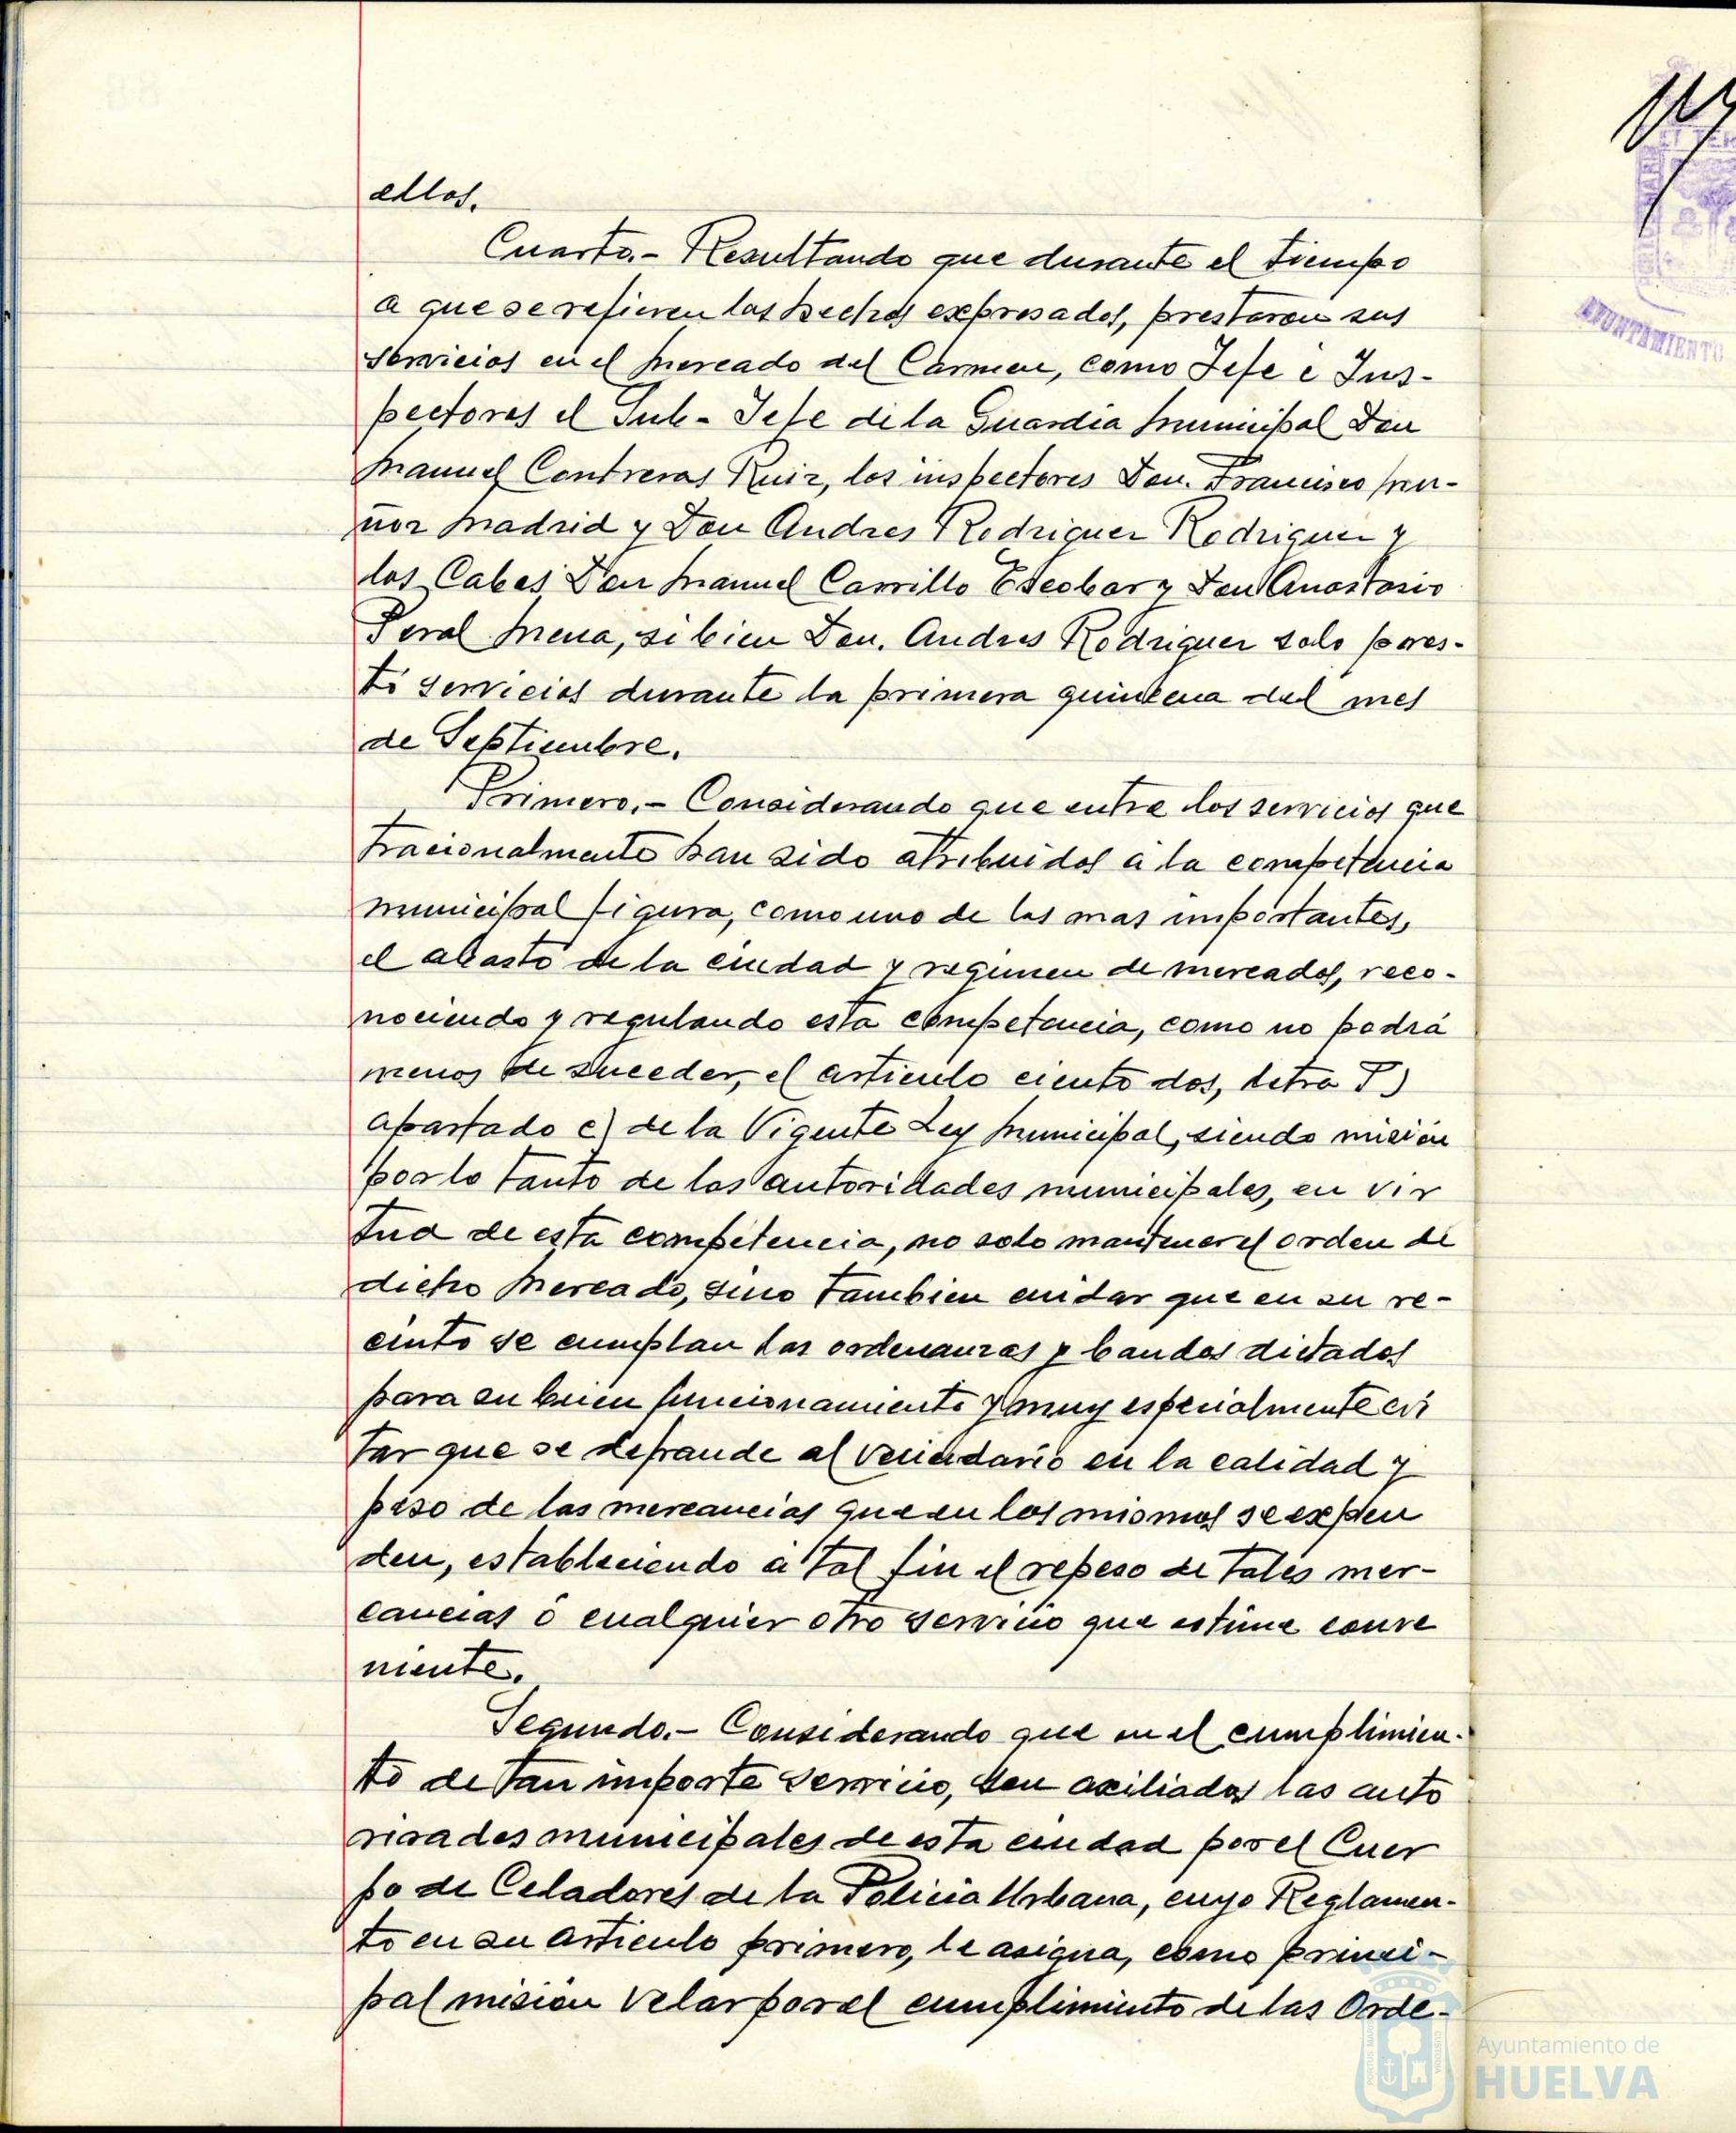 ellos.
Cuarto.- Resultando que durante el tiempo
a que se refieren los hechos expresados, prestaron sus
servicios en el Mercado del Carmen, como Jefe e Ins-
pectores el Sub-Jefe de la Guardia Municipal Don
Manuel Contreras Ruiz, los inspectores Don Francisco Mu-
ñoz Madrid y Don Andres Rodriguez Rodriguez y
los Cabos Don Manuel Carrillo Escobar y Don Anastasio
Peral Mena, si bien Don Andres Rodriguez solo pres-
tó servicios durante la primera quincena del mes
de Septiembre.
Primero.- Considerando que entre los servicios que
tracionalmente han sido atribuidos a la competencia
municipal figura, como uno de los mas importantes,
el abasto de la ciudad y regimen de mercados, reco-
nociendo y regulando esta competencia, como no podrá
menos de suceder, el articulo ciento dos, letra
apartado c) de la Vigente Ley Municipal, siendo misión
por lo tanto de las autoridades municipales, en vir
tud de esta competencia, no solo mantener el orden de
dicho Mercado, sino tambien cuidar que en su re-
cinto se cumplan las ordenanzas y bandos dictados
para su buen funcionamiento y muy especialmente evi
tar que se defraude al vecindario en la calidad y
peso de las mercancias que en los mismos se expen
den, estableciendo a tal fin el repeso de tales mer-
cancias ó cualquier otro servicio que estime conve
niente.
Segundo.- Considerando que en el cumplimien-
to de tan importe servicio, son axiliados las auto
ridades municipales de esta ciudad por el Cuer
po de Celadores de la Policia Urbana, cuyo Reglamen-
to en su articulo primero, le asigna, como princi-
pal misión velar por el cumplimiento de las Orde-
AYUNTAMIENTO
Ayuntamiento de
HUELVA